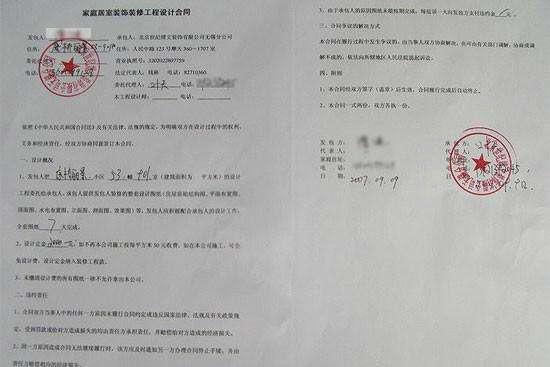 家庭居室装饰装修工程设计合同
发包人：
承包人：北京世纪博文装饰有限公司无锡分公司
住所：
住所：人民中路 123 号摩天 360－1707 室
电话：
营业执照号：320202307759
法定代表人：钱林 电话：82710360
委托代理人： 电话：
本工程设计师： 电话：
依照《中华人民共和国合同法》及有关法律、法规的规定，为明确双方在设计过程中的权利、
义务和经济责任，经双方协商同意签订本合同。
一、设计概况
1、发包人把 小区 53 幢 901 （建筑面积为 平方米）的设计
工程委托给承包人，承包人提供发包人装修的整套设计图纸（房屋原始结构图、平面布置图、
顶面图、水电布置图、立面图、剖面图、效果图）等，发包人应积极配合承包人的设计工作，
全套图纸 7 天完成。
2、设计定金 如不再本公司施工按每平方米 50 元收费，如在本公司施工，可全
免设计费，设计定金纳入装修工程款。
3、未缴清设计费的所有图纸一律不允许拿出本公司。
二、违约责任
1、合同双方当事人中的任何一方原因未履行合同约定或违反国家法律、法规及有关政策规
定，受到罚款或给对方造成损失的均由责任方承担责任，并赔偿给对方造成的经济损失。
2、因一方原因造成合同无法继续履行时，该方应及时通知另一方办理合同终止手续，并由
责任方赔偿相应的经济损失。
3、由于承包人的原因图纸未能按期完成，每延误一天向发包方支付违约金 元。
三、合同争议的解决方式
本合同在履行过程中发生争议的，由当事人双方协商解决，也可由有关部门调解，协商或调
解不成的，依法向所辖地区人民法院提起诉讼。
四、附则
1、本合同经双方签字（盖章）后生效，合同履行完后自动终止。
2、本合同一式两份，双方各执一份。
发包方：
承包方：
代表人：
代表人：
家庭住址：
电话：
电话：
日期：2007.09.09
日期：